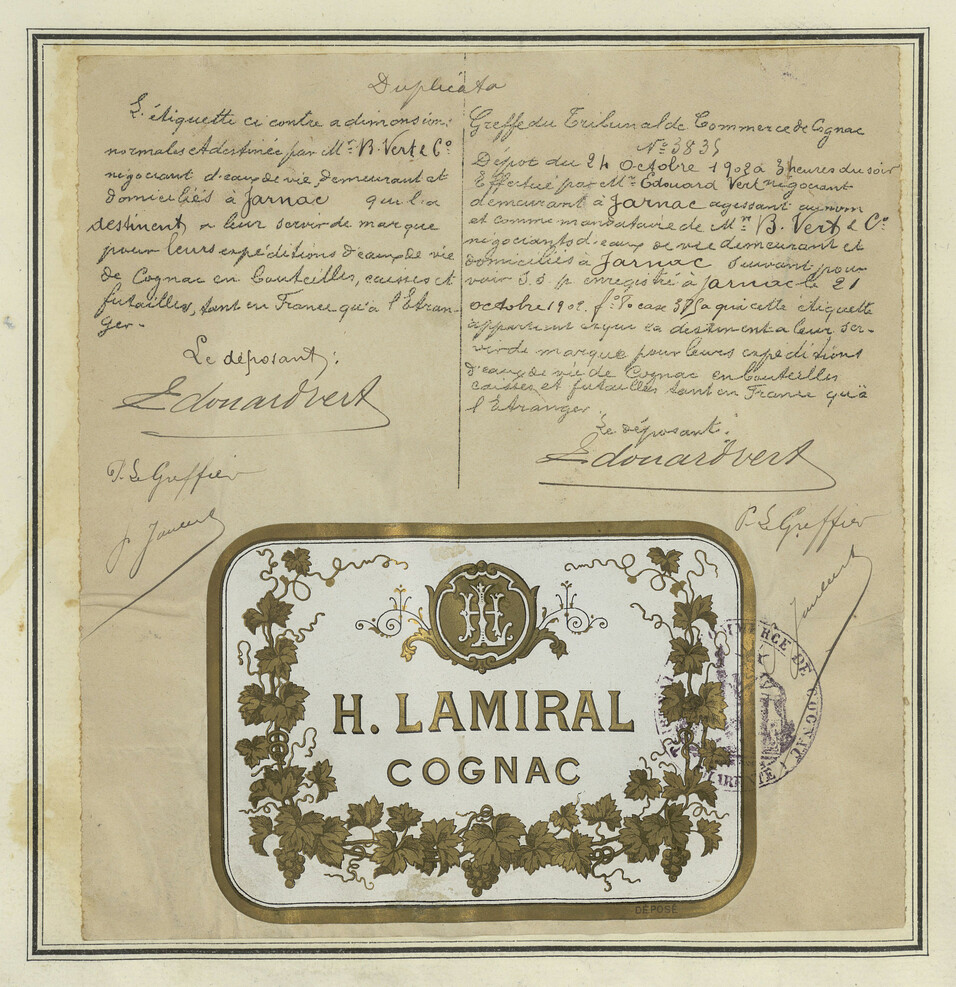 Duplicata
L'étiquette ci contre a dimensions
normales et destinée par Mr B. Vert & Co
négociant d'eaux de vie demeurant et
domiciliés à Jarnac qui la
destinent a leur servir de marque
pour leurs expéditions d'eaux de vie
de Cognac en bouteilles, caisses et
futailles, tant en France qu'à l'Etran-
ger.
Le déposant:
Edouard Vert
P. Le Greffier
Greffe du Tribunal de Commerce de Cognac
No 3835
Dépot du 24 octobre 1902 à 3 heures du soir
Effectué par Mr Edouard Vert négociant
demeurant à Jarnac agissant au nom
et comme mandataire de Mr B. Vert & Co
négociants d'eaux de vie demeurant et
domiciliés à Jarnac suivant pou-
voir S.S.p enregistré à Jarnac le 21
octobre 1902 fo case 375 a qui cette étiquette
appartient et qui la destinent a leur ser-
vir de marque pour leurs expéditions
d'eaux de vie de Cognac en bouteilles
caisses et futailles tant en France qu'à
l'Etranger.
Le déposant:
Edouard Vert
P. Le Greffier
HL
H. LAMIRAL
COGNAC
DÉPOSÉ
COMMERCE DE COGNAC